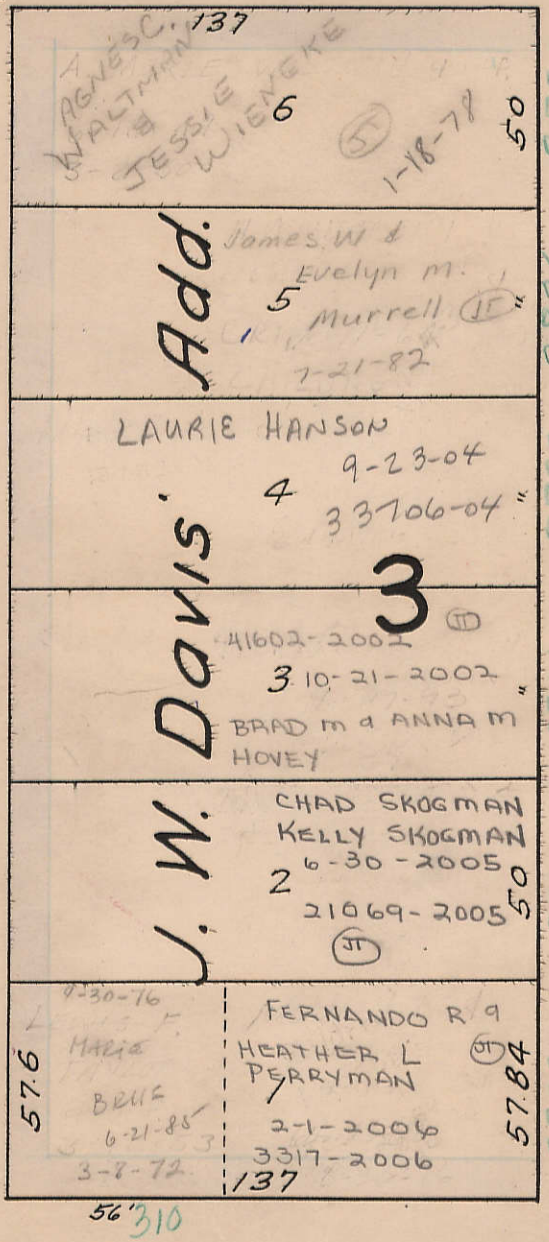 137
AGNES C.
WALTMAN
&
JESSIE
WIENEKE
6
JT
1-18-78
50
James W &
Evelyn M.
5
Murrell JT
"
7-21-82
LAURIE HANSON
9-23-04
4
33706-04
"
3
41602-2002
JT
3 10-21-2002
"
BRAD M & ANNA M
HOVEY
CHAD SKOGMAN
KELLY SKOGMAN
6-30-2005
2
21069-2005
50
JT
J. W. Davis' Add.
9-30-76
MARIE
6-21-85
3-8-72
57.6
FERNANDO R &
HEATHER L
JT
PERRYMAN
1
2-1-2006
3317-2006
57.84
137
56'
310